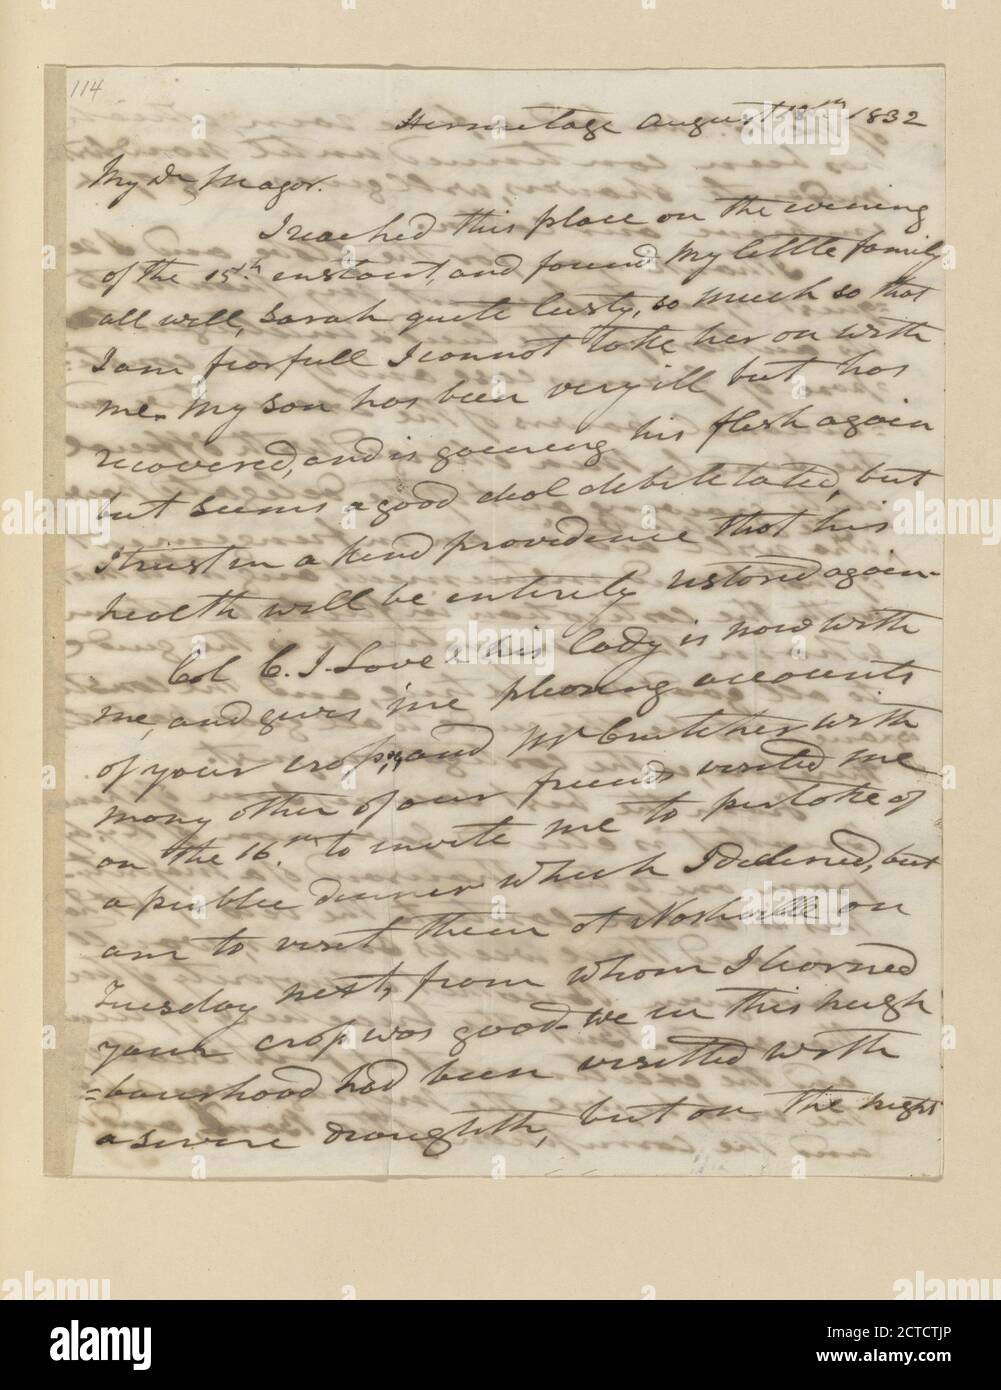 114
Hermitage August 18th 1832
My Dr Magor.
I reached this place on the evening
of the 15th instant, and found my little family
all well, Sarah quite lusty, so much so that
I am fearfull I cannot take her on with
me. My son has been very ill but has
recovered, and is gaening his flesh again
but seems a good deal debilitated, but
I trust in a kind providence that his
health will be entirely restored again.
Col C. J. Love & his lady is now with
me, and gives me pleasing accounts
of your crops, and Mr Crutcher with
many other of our friends visited me
on the 16th to invite me to pertake of
a publee dinner which I declined, but
am to visit them at Nashville on
Tuesday next, from whom I learned
your crop was good. We in this neigh
=bourhood had been visitted with
a severe droughth, but on the night
alamy
Image ID: 2CTCTJP
www.alamy.com